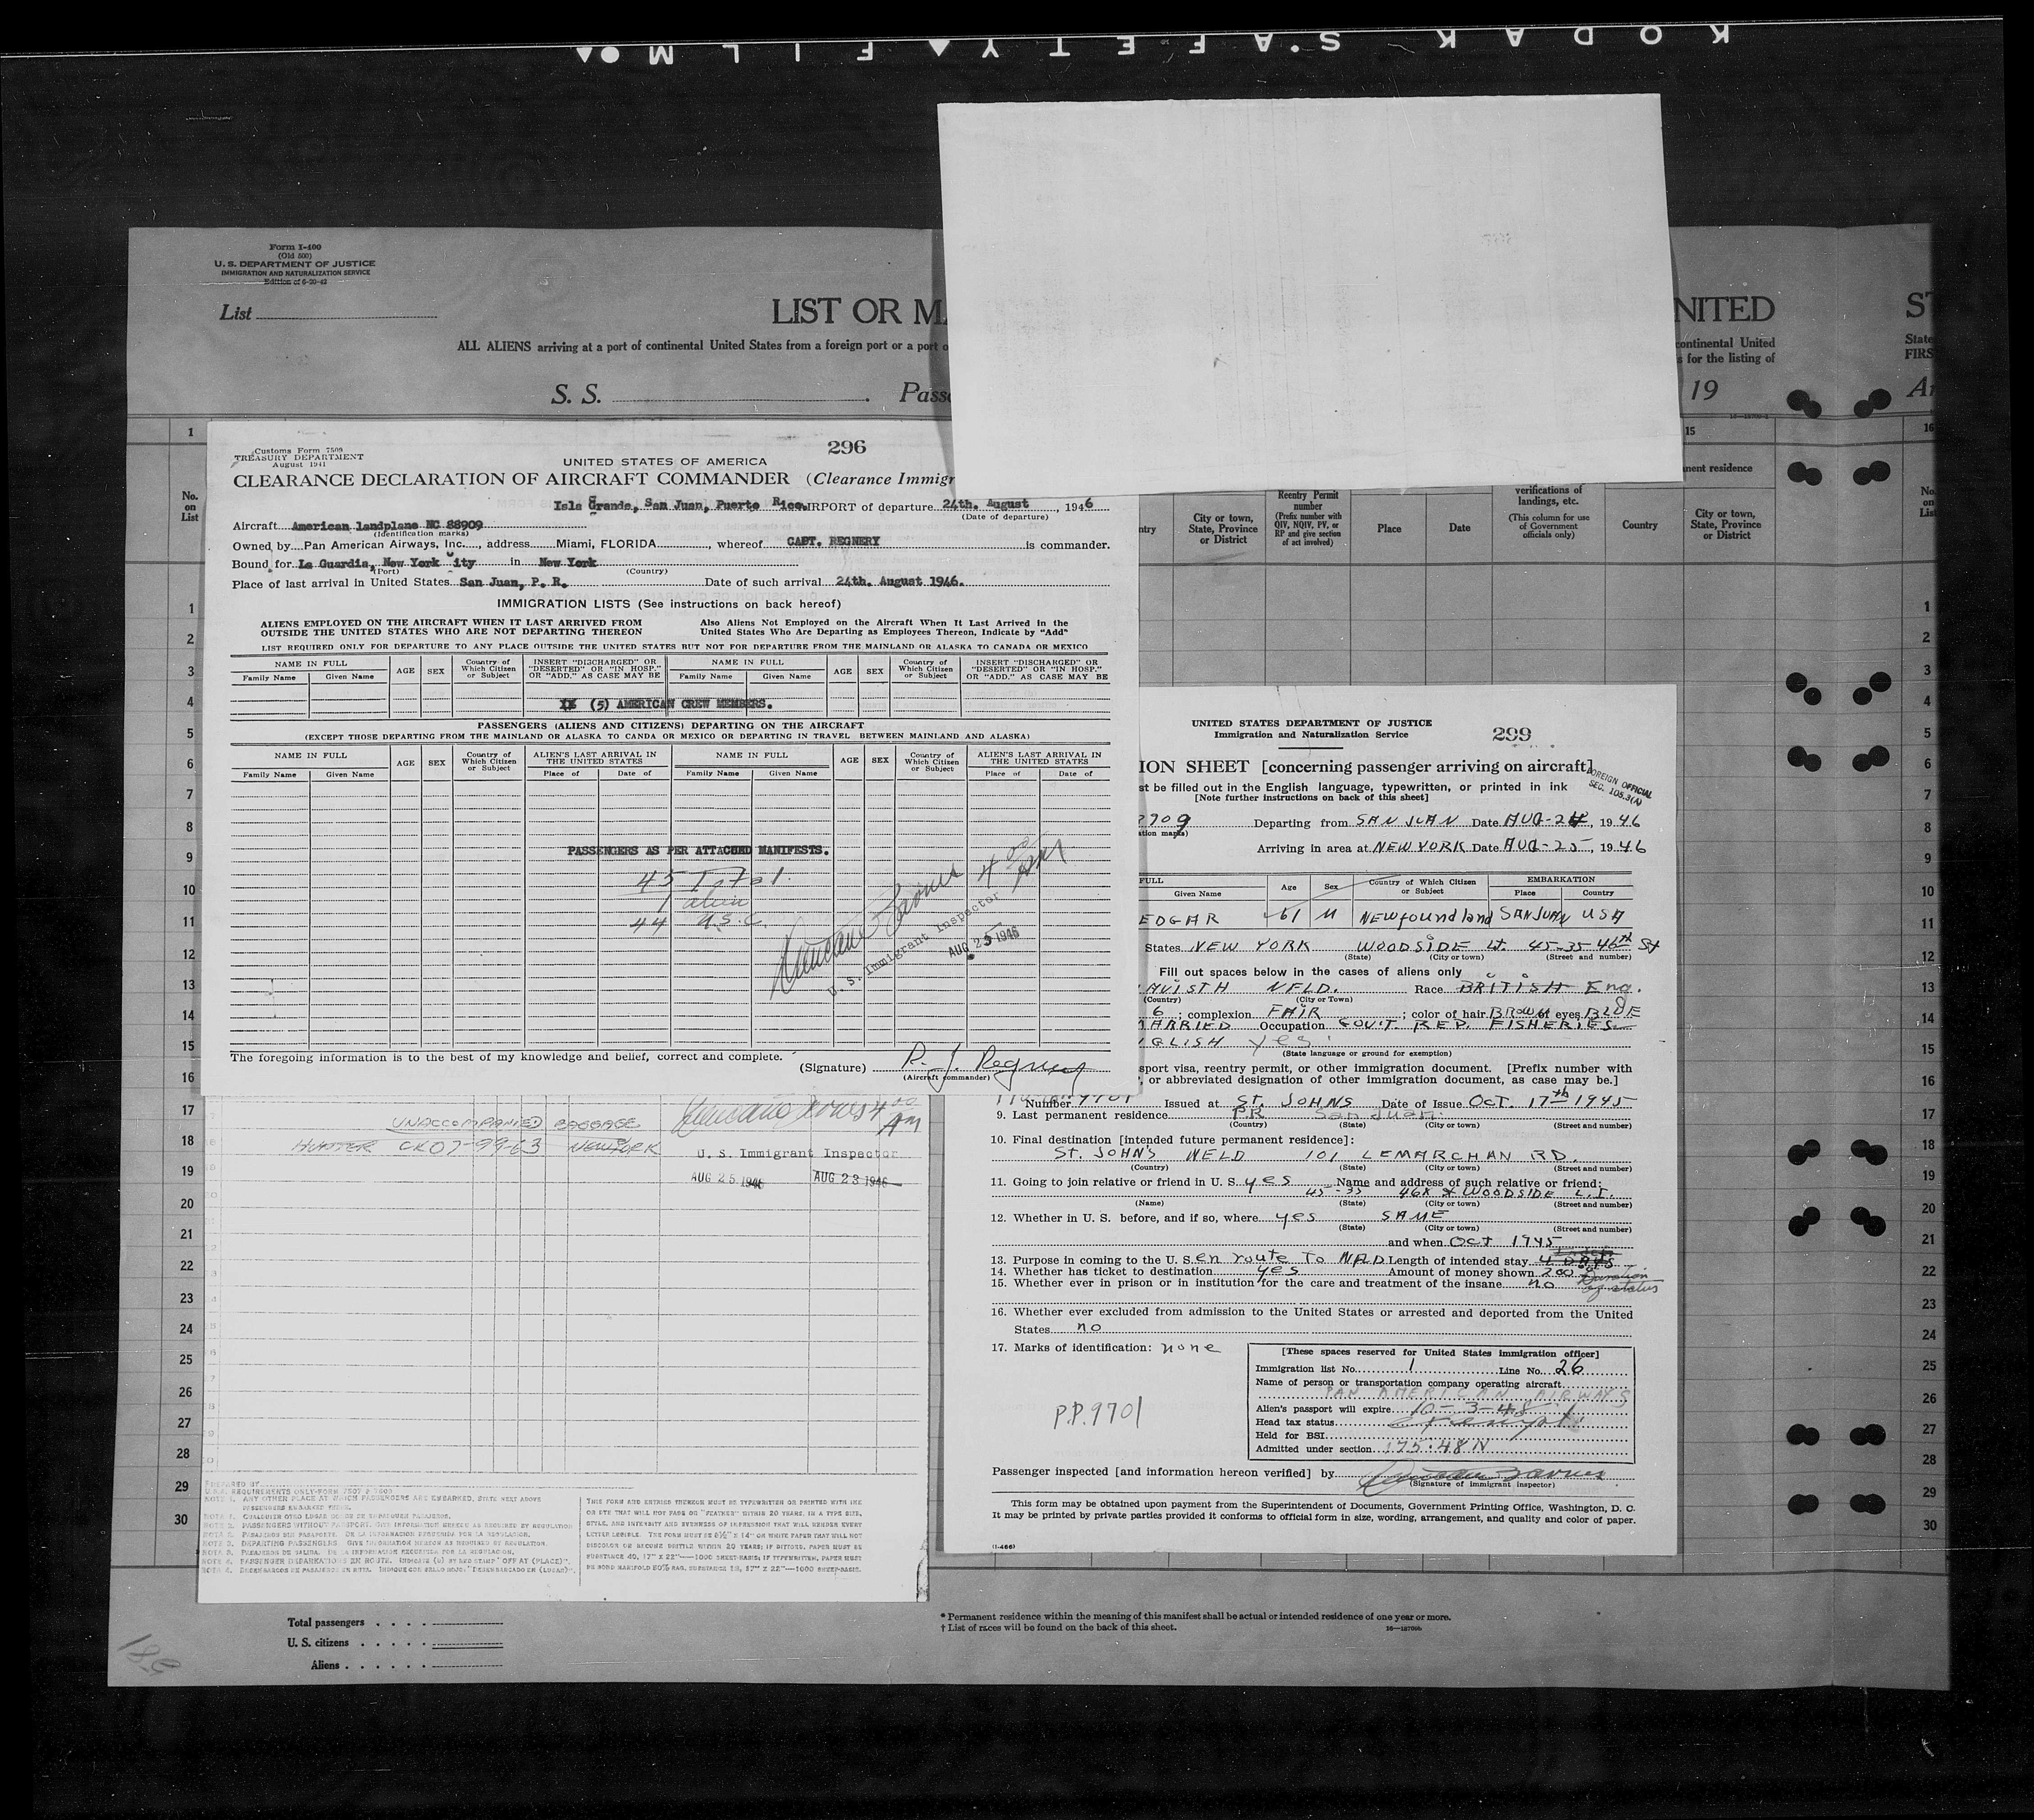 KODAK SAFETY FILM
Form I-400
(Old 500)
U. S. DEPARTMENT OF JUSTICE
IMMIGRATION AND NATURALIZATION SERVICE
Edition of 6-20-43
List
LIST OR MA
NITED
ST
ALL ALIENS arriving at a port of continental United States from a foreign port or a port o
continental United
s for the listing of
State
FIRS
S. S. Passe
19
Customs Form 7509
TREASURY DEPARTMENT
August 1941
UNITED STATES OF AMERICA
296
CLEARANCE DECLARATION OF AIRCRAFT COMMANDER (Clearance Immigr
Isla Grande, San Juan, Puerto Rico. IRPORT of departure 24th. August, 1946
(Date of departure)
Aircraft American landplane NC 88909
(Identification marks)
Owned by Pan American Airways, Inc., address Miami, FLORIDA, whereof CAPT. REGNERY is commander.
Bound for La Guardia, New York City in New York
(Port) (Country)
Place of last arrival in United States San Juan, P. R. Date of such arrival 24th. August 1946.
IMMIGRATION LISTS (See instructions on back hereof)
ALIENS EMPLOYED ON THE AIRCRAFT WHEN IT LAST ARRIVED FROM
OUTSIDE THE UNITED STATES WHO ARE NOT DEPARTING THEREON
Also Aliens Not Employed on the Aircraft When It Last Arrived in the
United States Who Are Departing as Employees Thereon, Indicate by "Add"
LIST REQUIRED ONLY FOR DEPARTURE TO ANY PLACE OUTSIDE THE UNITED STATES BUT NOT FOR DEPARTURE FROM THE MAINLAND OR ALASKA TO CANADA OR MEXICO
NAME IN FULL
Family Name Given Name
AGE SEX
Country of
Which Citizen
or Subject
INSERT "DISCHARGED" OR
"DESERTED" OR "IN HOSP."
OR "ADD." AS CASE MAY BE
NAME IN FULL
Family Name Given Name
AGE SEX
Country of
Which Citizen
or Subject
INSERT "DISCHARGED" OR
"DESERTED" OR "IN HOSP."
OR "ADD." AS CASE MAY BE
(5) AMERICAN CREW MEMBERS.
PASSENGERS (ALIENS AND CITIZENS) DEPARTING ON THE AIRCRAFT
(EXCEPT THOSE DEPARTING FROM THE MAINLAND OR ALASKA TO CANDA OR MEXICO OR DEPARTING IN TRAVEL BETWEEN MAINLAND AND ALASKA)
NAME IN FULL
Family Name Given Name
AGE SEX
Country of
Which Citizen
or Subject
ALIEN'S LAST ARRIVAL IN
THE UNITED STATES
Place of Date of
NAME IN FULL
Family Name Given Name
AGE SEX
Country of
Which Citizen
or Subject
ALIEN'S LAST ARRIVAL IN
THE UNITED STATES
Place of Date of
PASSENGERS AS PER ATTACHED MANIFESTS.
45 Total.
1 alien
44 U.S.C.
4 00 AM
U. S. Immigrant Inspector
AUG 25 1946
The foregoing information is to the best of my knowledge and belief, correct and complete.
(Signature) R. J. Regnery
(Aircraft commander)
UNACCOMPANIED BAGGAGE
HUNTER CK07-99-63 NEW YORK
4 00 AM
U. S. Immigrant Inspector
AUG 25 1946 AUG 23 1946
PREPARED BY
THIS FORM AND ENTRIES THEREON MUST BE TYPEWRITTEN OR PRINTED WITH INK
Total passengers
U. S. citizens
Aliens
UNITED STATES DEPARTMENT OF JUSTICE
Immigration and Naturalization Service
299
ION SHEET [concerning passenger arriving on aircraft]
FOREIGN OFFICIAL
SEC. 105.3(A)
st be filled out in the English language, typewritten, or printed in ink
[Note further instructions on back of this sheet]
Departing from SAN JUAN Date AUG-24, 1946
Arriving in area at NEW YORK Date AUG-25, 1946
FULL
Given Name
Age Sex
Country of Which Citizen
or Subject
EMBARKATION
Place Country
EDGAR 61 M Newfoundland SAN JUAN USA
States NEW YORK WOODSIDE LI 45-35-46th St
(State) (City or town) (Street and number)
Fill out spaces below in the cases of aliens only
NFLD. Race BRITISH Eng.
(Country) (City or Town)
6 ; complexion FAIR ; color of hair BROWN eyes BLUE
ARRIED Occupation GOV'T. REP. FISHERIES
GLISH yes
(State language or ground for exemption)
sport visa, reentry permit, or other immigration document. [Prefix number with
, or abbreviated designation of other immigration document, as case may be.]
Number 9701 Issued at ST. JOHNS Date of Issue OCT. 17th 1945
9. Last permanent residence P.R. San Juan
(Country) (State) (City or town) (Street and number)
10. Final destination [intended future permanent residence]:
ST. JOHN'S NFLD 101 LEMARCHAN RD.
(Country) (State) (City or town) (Street and number)
11. Going to join relative or friend in U. S. yes Name and address of such relative or friend:
45-35 46th St WOODSIDE L.I.
(Name) (State) (City or town) (Street and number)
12. Whether in U. S. before, and if so, where yes SAME
(State) (City or town) (Street and number)
and when OCT 1945
13. Purpose in coming to the U. S. en route To NFLD Length of intended stay 4 DAYS
14. Whether has ticket to destination yes Amount of money shown 200
Duration of status
15. Whether ever in prison or in institution for the care and treatment of the insane no
16. Whether ever excluded from admission to the United States or arrested and deported from the United
States no
17. Marks of identification: none
P.P. 9701
[These spaces reserved for United States immigration officer]
Immigration list No. 1 Line No. 26
Name of person or transportation company operating aircraft
PAN AMERICAN AIRWAYS
Alien's passport will expire 10-3-48
Head tax status exempt
Held for BSI
Admitted under section 175.48N
Passenger inspected [and information hereon verified] by
(Signature of immigrant inspector)
This form may be obtained upon payment from the Superintendent of Documents, Government Printing Office, Washington, D. C.
It may be printed by private parties provided it conforms to official form in size, wording, arrangement, and quality and color of paper.
(I-466)
* Permanent residence within the meaning of this manifest shall be actual or intended residence of one year or more.
† List of races will be found on the back of this sheet.